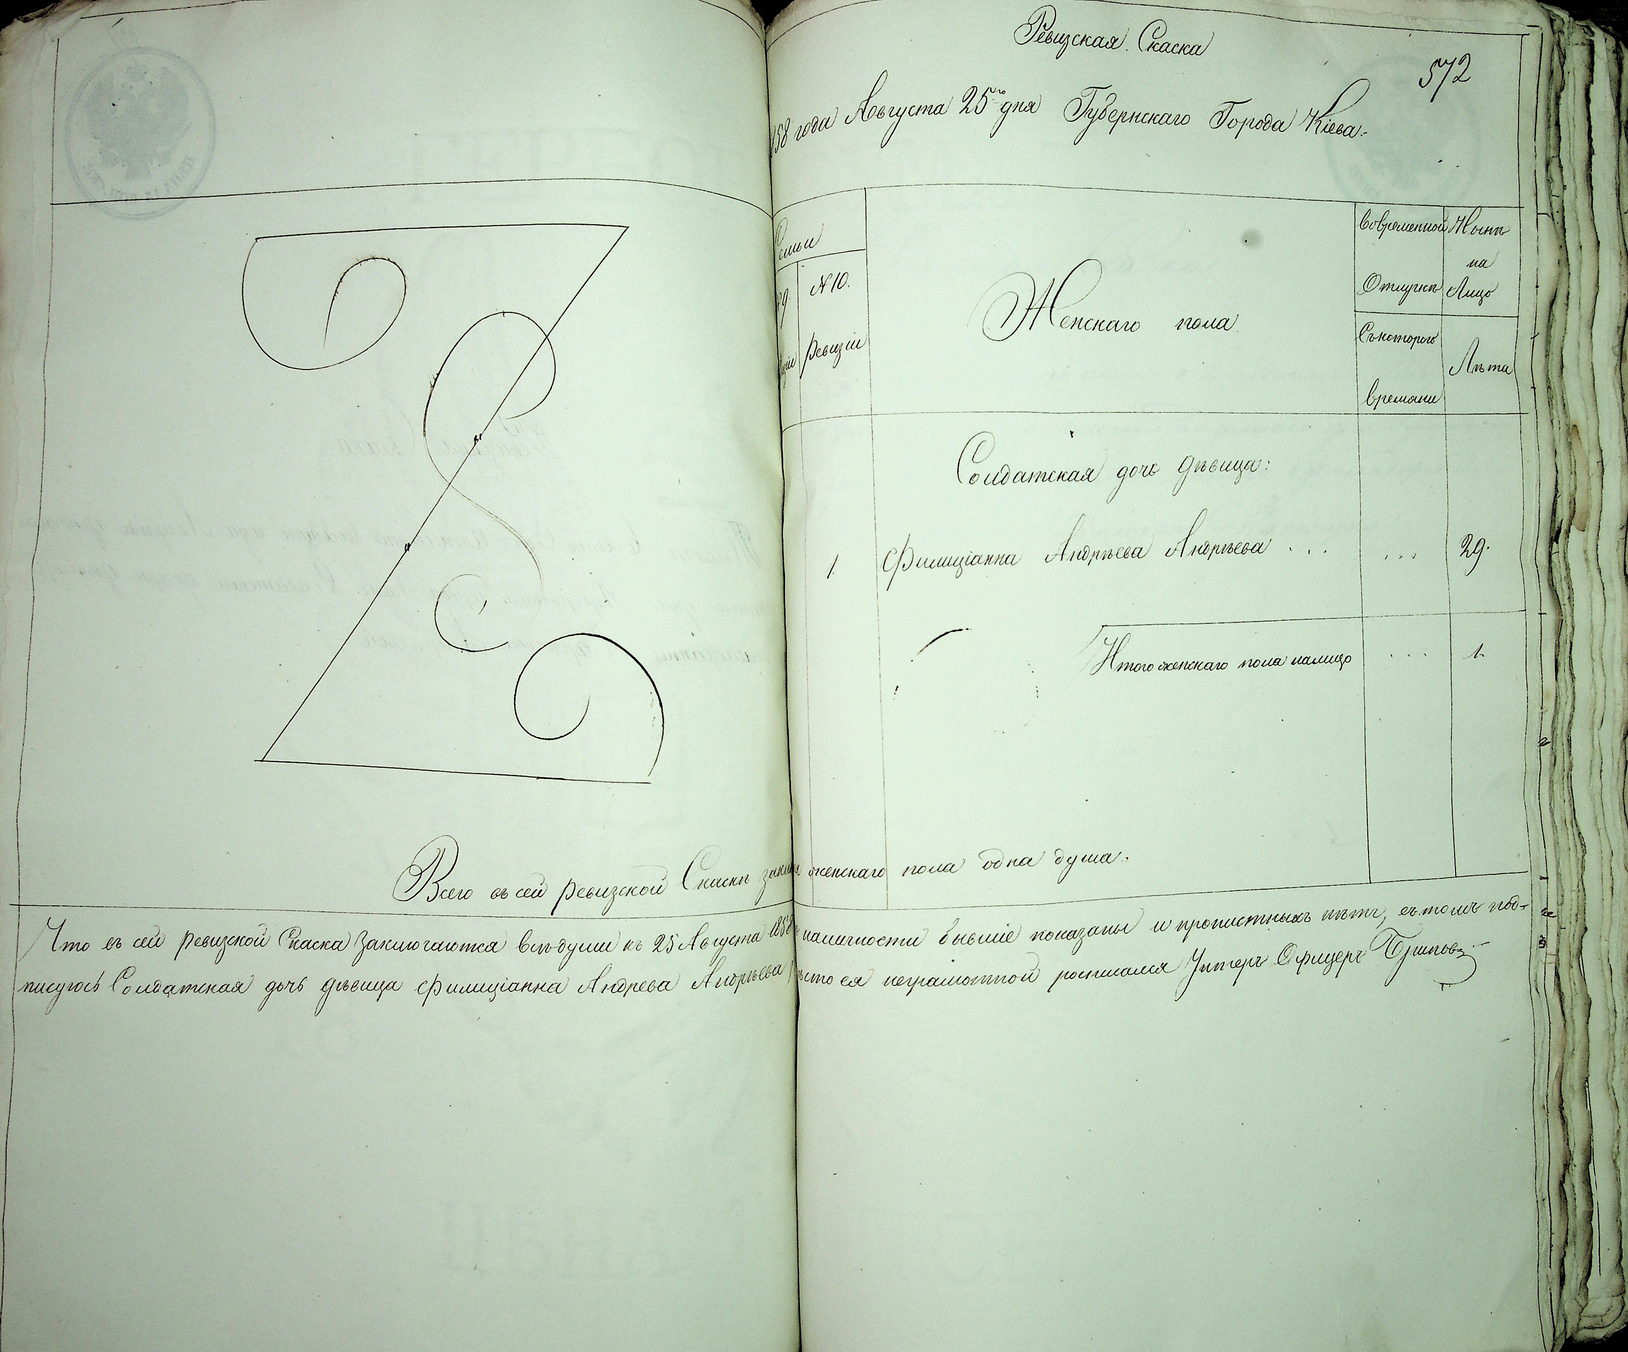 Ревизская Скаска
572
858 года Августа 25го дня Губернскаго Города Кіева
Семьи
№ 10.
ревизіи
Женскаго пола
Вовременной
Отлучкѣ
Съкотораго
времани
Нынѣ
на
Лицо
Лѣта
Солдатская дочь дѣвица:
1 Филиціанна Андрѣева Андрѣева . . . . . . 29.
Итого женскаго пола налицо . . . 1.
Всего въ сей ревизской Скаскѣ женскаго пола одна душа.
Что въ сей ревизской Скаска Заключаются всѣ души къ 25 Августа 1858 наличности бывшіе показаны и пропистныхъ нѣтъ, въ томъ под-
писуюсь Солдатская дочь дѣвица Филиціанна Андрева Андрѣева неграмотной росписался Унтеръ Офицеръ